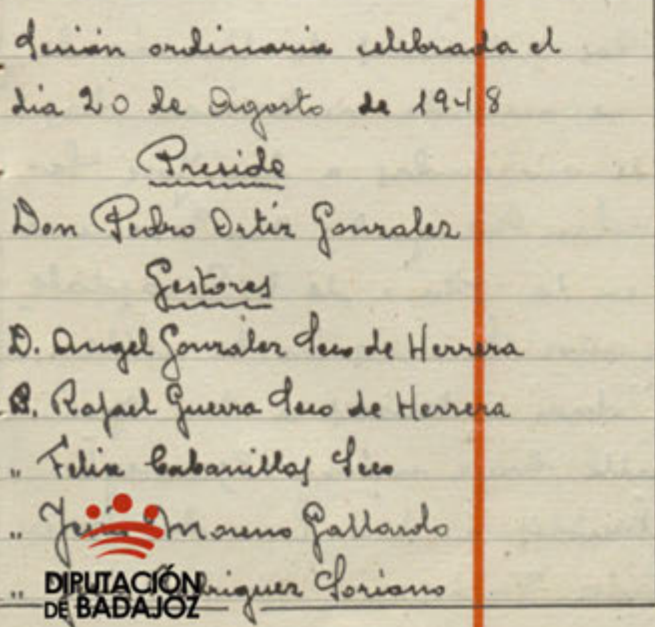 Sesión ordinaria celebrada el
día 20 de Agosto de 1948
Preside
Don Pedro Ortiz Gonzalez
Gestores
D. Angel Gonzalez Seco de Herrera
D. Rafael Guerra Seco de Herrera
" Felix Cabanillas Seco
" Jesús Moreno Gallardo
" Soriano
DIPUTACIÓN
DE BADAJOZ